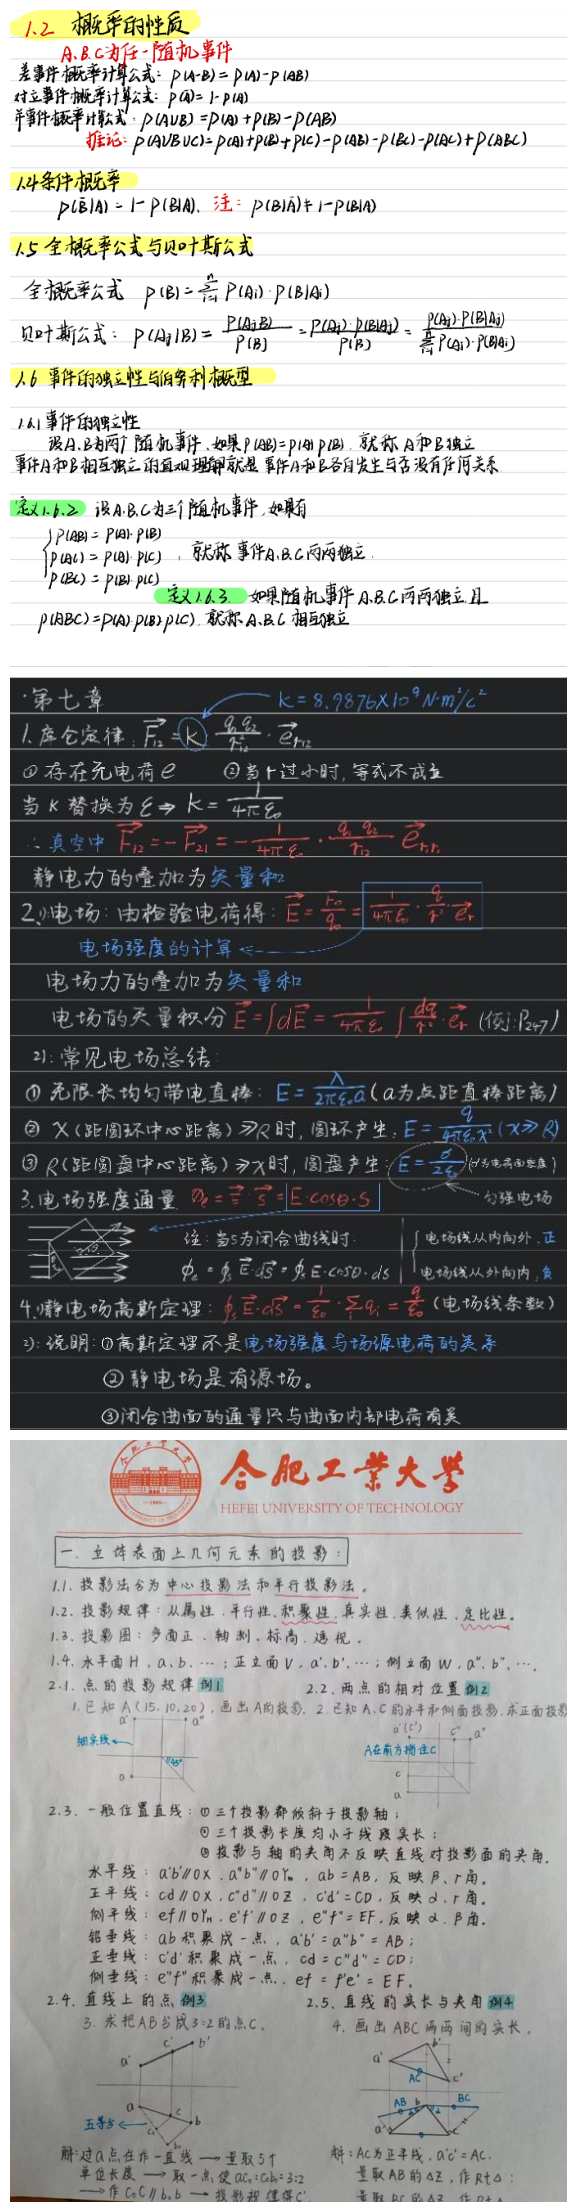 1.2 概率的性质
A.B.C为任一随机事件
差事件概率计算公式: P(A-B) = P(A)-P(AB)
对立事件概率计算公式: P(Ā) = 1-P(A)
并事件概率计算公式: P(AUB) = P(A)+P(B)-P(AB)
推论: P(AUBUC) = P(A)+P(B)+P(C)-P(AB)-P(BC)-P(AC)+P(ABC)
1.4条件概率
P(B̄|A) = 1-P(B|A). 注: P(B|Ā) ≠ 1-P(B|A)
1.5 全概率公式与贝叶斯公式
全概率公式 P(B) = Σⁿᵢ₌₁ P(Ai)·P(B|Ai)
贝叶斯公式: P(Aj|B) = P(AjB)/P(B) = P(Aj)·P(B|Aj)/P(B) = P(Aj)·P(B|Aj)/Σⁿᵢ₌₁P(Ai)·P(B|Ai)
1.6 事件的独立性与伯努利概型
1.6.1 事件的独立性
设A.B为两个随机事件,如果P(AB)=P(A)P(B).就称A和B独立
事件A和B相互独立的直观理解就是事件A和B各自发生与否没有任何关系
定义1.6.2 设A.B.C为三个随机事件,如果有
P(AB) = P(A)·P(B)
P(AC) = P(A)·P(C) ,就称事件A.B.C两两独立.
P(BC) = P(B)·P(C)
定义1.6.3 如果随机事件A.B.C两两独立且
P(ABC)=P(A)P(B)P(C).就称A.B.C相互独立
·第七章 K = 8.9876×10⁹ N·m²/c²
1.库仑定律: F⃗₁₂ = K q₁q₂/r₁₂² · e⃗r₁₂
① 存在元电荷e ② 当r过小时,等式不成立
当K替换为ε⇒ K = 1/4πε₀
∴真空中 F⃗₁₂ = -F⃗₂₁ = -1/4πε₀ · q₁q₂/r₁₂
静电力的叠加为矢量和
2.1)电场: 由检验电荷得: E⃗ = F₀/q₀ = 1/4πε₀ · q/r² · e⃗r
电场强度的计算
电场力的叠加为矢量和
电场的矢量积分 E⃗ = ∫dE⃗ = 1/4πε₀ ∫ dq/r² · e⃗r (例:P247)
2): 常见电场总结:
① 无限长均匀带电直棒: E = λ/2πε₀a (a为点距直棒距离)
② X(距圆环中心距离)≫R时,圆环产生: E = q/4πε₀x² (x≫R)
③ R(距圆盘中心距离)≫x时,圆盘产生: E = σ/2ε₀ (σ为电荷面密度)
匀强电场
3.电场强度通量 Φe = E⃗·S⃗ = E·cosθ·S
注: 当S为闭合曲线时: 电场线从内向外,正
Φe = ∮s E⃗·dS⃗ = ∮s E·cosθ·ds 电场线从外向内,负
4.1)静电场高斯定理: ∮s E⃗·dS⃗ = 1/ε₀ · Σqi = q/ε₀ (电场线条数)
2): 说明: ①高斯定理不是电场强度与场源电荷的关系
② 静电场是有源场。
③闭合曲面的通量只与曲面内部电荷有关
合肥工业大学
HEFEI UNIVERSITY OF TECHNOLOGY
一.立体表面上几何元素的投影:
1.1.投影法分为中心投影法和平行投影法。
1.2.投影规律:从属性.平行性.积聚性.真实性.类似性.定比性。
1.3.投影图:多面正.轴测.标高.透视。
1.4.水平面H,a.b.…;正立面V,a'.b'.…;侧立面W,a".b".…
2.1.点的投影规律 例1 2.2.两点的相对位置 例2
1.已知A(15,10,20),画出A的投影. 2.已知A.C的水平和侧面投影,求正面投影
a' a" a'(c') c" a"
细实线 45° A在前方挡住C
c
a a
2.3.一般位置直线:① 三个投影都倾斜于投影轴;
② 三个投影长度均小于线段实长;
③ 投影与轴的夹角不反映直线对投影面的夹角.
水平线:a'b'∥OX,a"b"∥OYw,ab=AB,反映β.γ角。
正平线:cd∥OX,c"d"∥OZ,c'd'=CD,反映α.γ角。
侧平线:ef∥OYH,e'f'∥OZ,e"f"=EF,反映α.β角。
铅垂线:ab积聚成一点,a'b'=a"b"=AB;
正垂线:c'd'积聚成一点,cd=c"d"=CD;
侧垂线:e"f"积聚成一点,ef=f'e'=EF.
2.4.直线上的点 例3 2.5.直线的实长与夹角 例4
3.求把AB分成3:2的点C. 4.画出ABC两两间的实长.
a' c' b' a' b' c'
AC
AB b BC
a c b
五等分
解:过a点任作一直线→量取5个 解:AC为正平线,a'c'=AC.
单位长度→取一点使ac₀:c₀b₀=3:2 量取AB的ΔZ,作Rt△;
→作C₀C∥b₀b→投影规律得C'. 量取BC的ΔZ,作Rt△